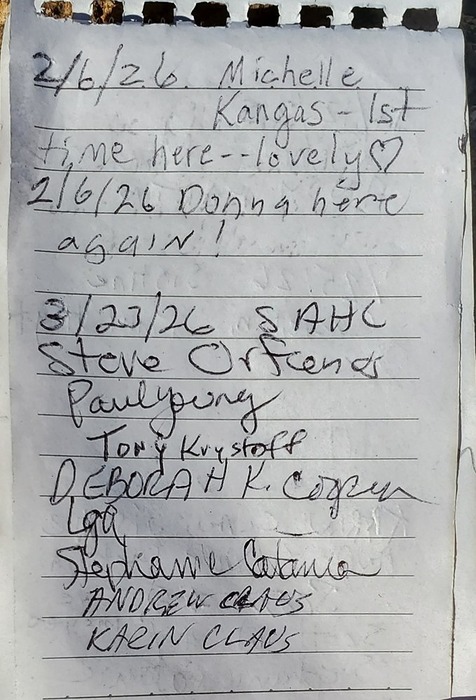 2/6/26. Michelle
Kangas - 1st
time here--lovely♡
2/6/26 Donna here
again!
3/23/26 SAHC
Steve
Paul young
Tony Krystoff
DEBORAH K.
Stephanie Catania
ANDREW CLAUS
KARIN CLAUS